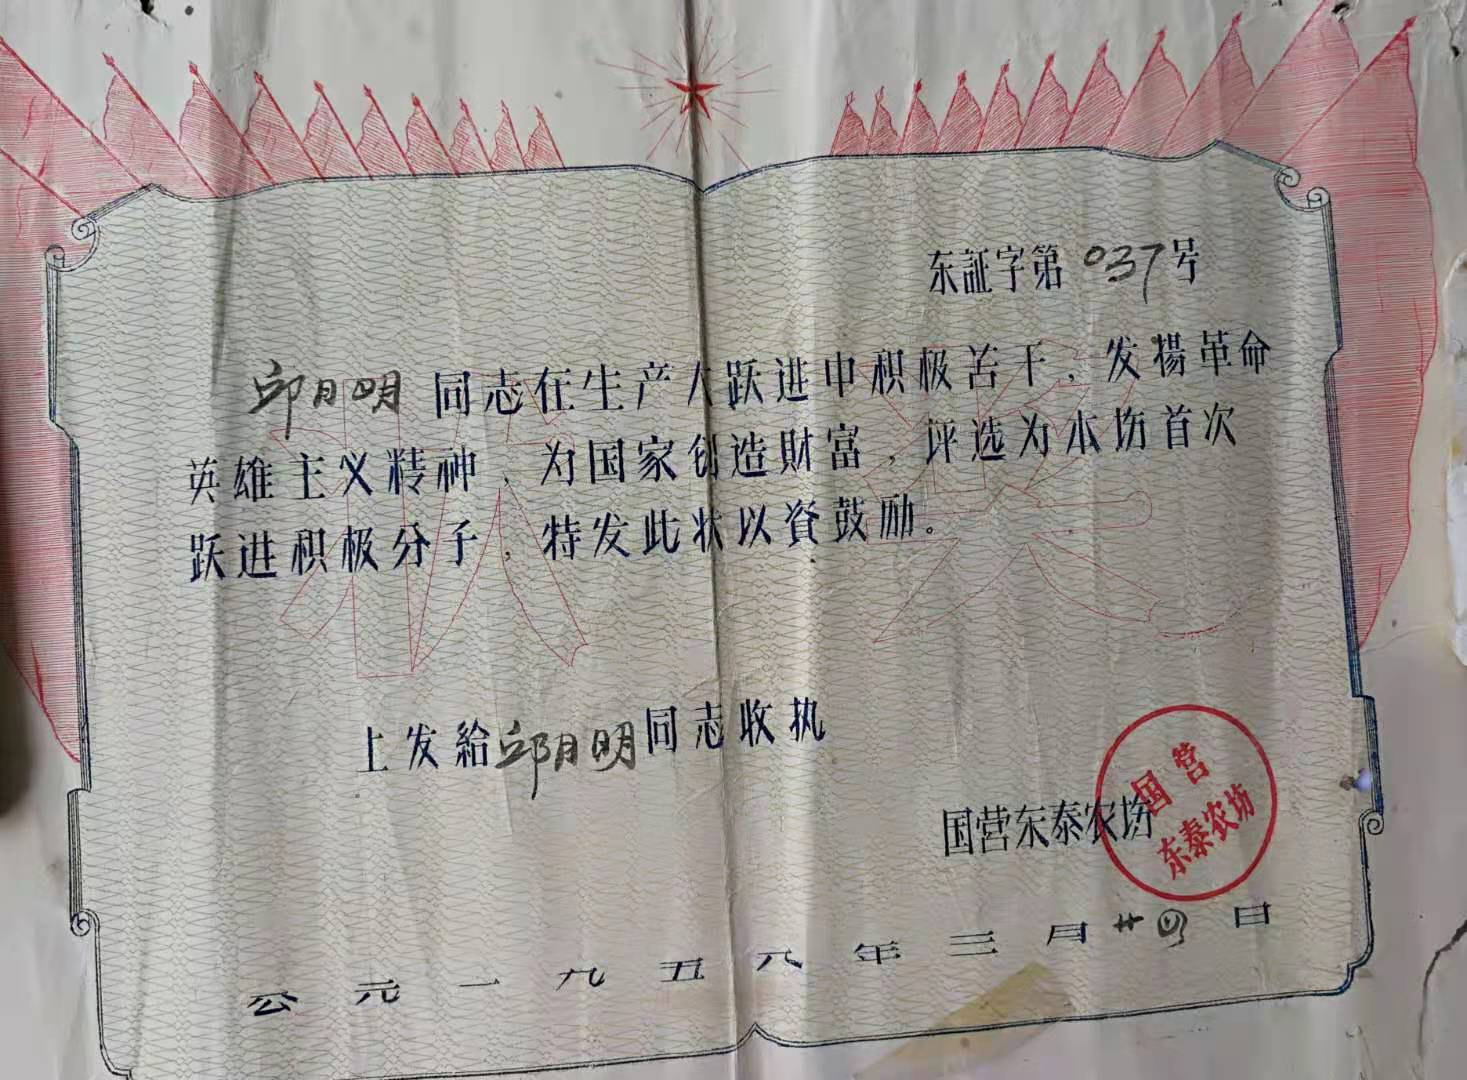 东証字第 037 号
邱月明 同志在生产大跃进中积极苦干，发揚革命
英雄主义精神，为国家创造財富，评选为本坊首次
跃进积极分子，特发此状以資鼓励。
奖状
上发給邱月明同志收执
国营东泰农坊
国营
东泰农坊
公元一九五八年三月廿四日